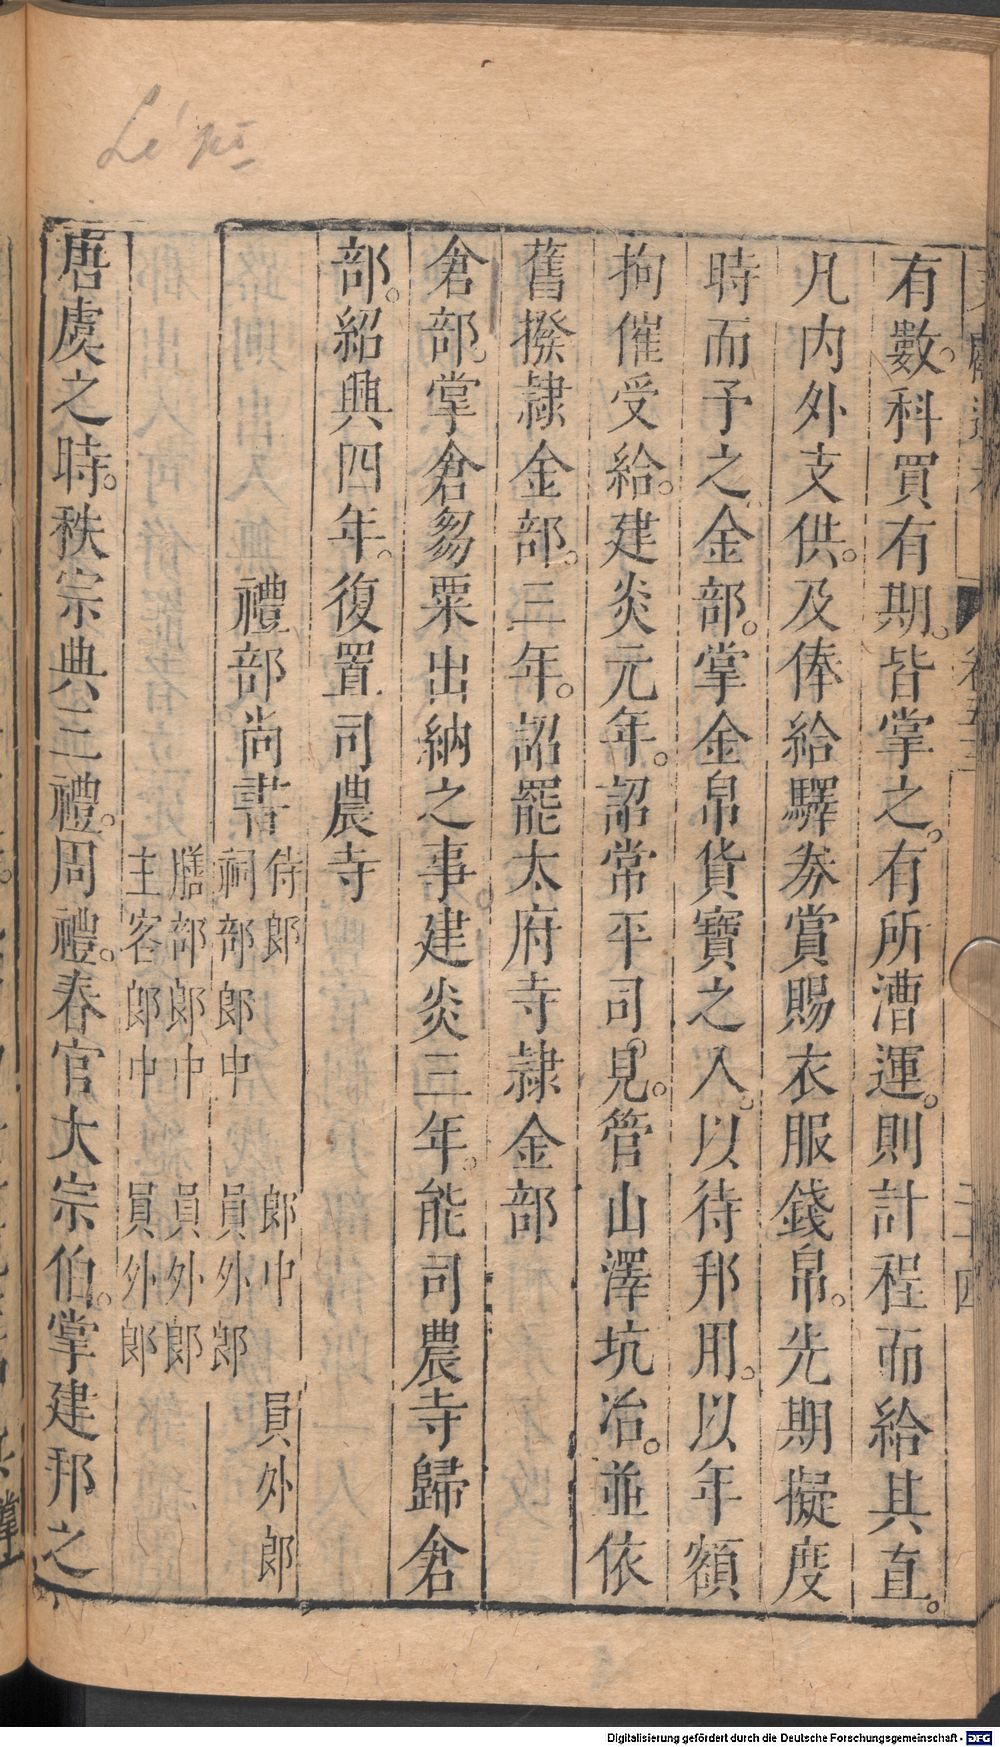 Lé pó
有數。科買有期。皆掌之。有所漕運。則計程而給其直。
凡内外支供。及俸給驛券賞賜衣服錢帛。先期擬度
時而予之金部。掌金帛貨寶之入。以待邦用。以年額
拘催受給。建炎元年。詔常平司。見。管山澤坑冶。並依
舊撥隷金部。三年。詔罷太府寺隷金部
倉部。掌倉芻粟出納之事。建炎三年。罷司農寺歸倉
部。紹興四年。復置司農寺
禮部尚書
侍郎 郎中 員外郎
祠部郎中 員外郎
膳部郎中 員外郎
主客郎中 員外郎
唐虞之時。秩宗典三禮。周禮。春官大宗伯。掌建邦之
Digitalisierung gefördert durch die Deutsche Forschungsgemeinschaft - DFG